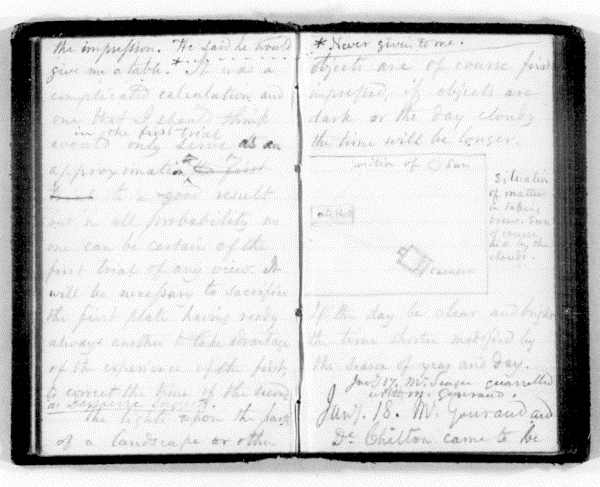 the impression. He said he would
give me a table.* It was a
complicated calculation, and
one that I should think
in the first trial
would only serve as an
approximation the first
to a good result
but in all probability no
one can be certain of the
first trial of any view. It
will be necessary to sacrifice
the first plate having ready
always another to take advantage
of the experience of the first,
to correct the time of the second
The lights upon the parts
of a landscape or other
* Never given to me.
objects are of course first
impressed, if objects are
dark or the day cloudy
the time will be longer.
position of Sun
Situation
of matters
in taking
view. Sun
of course
hid by the
clouds.
camera
If the day be clear and bright
the time shorter modified by
the season of year and day.
Jany 17. Mr Seager quarrelled
with M. Gouraud.
Jany. 18. M. Gouraud and
Dr. Chilton came to be